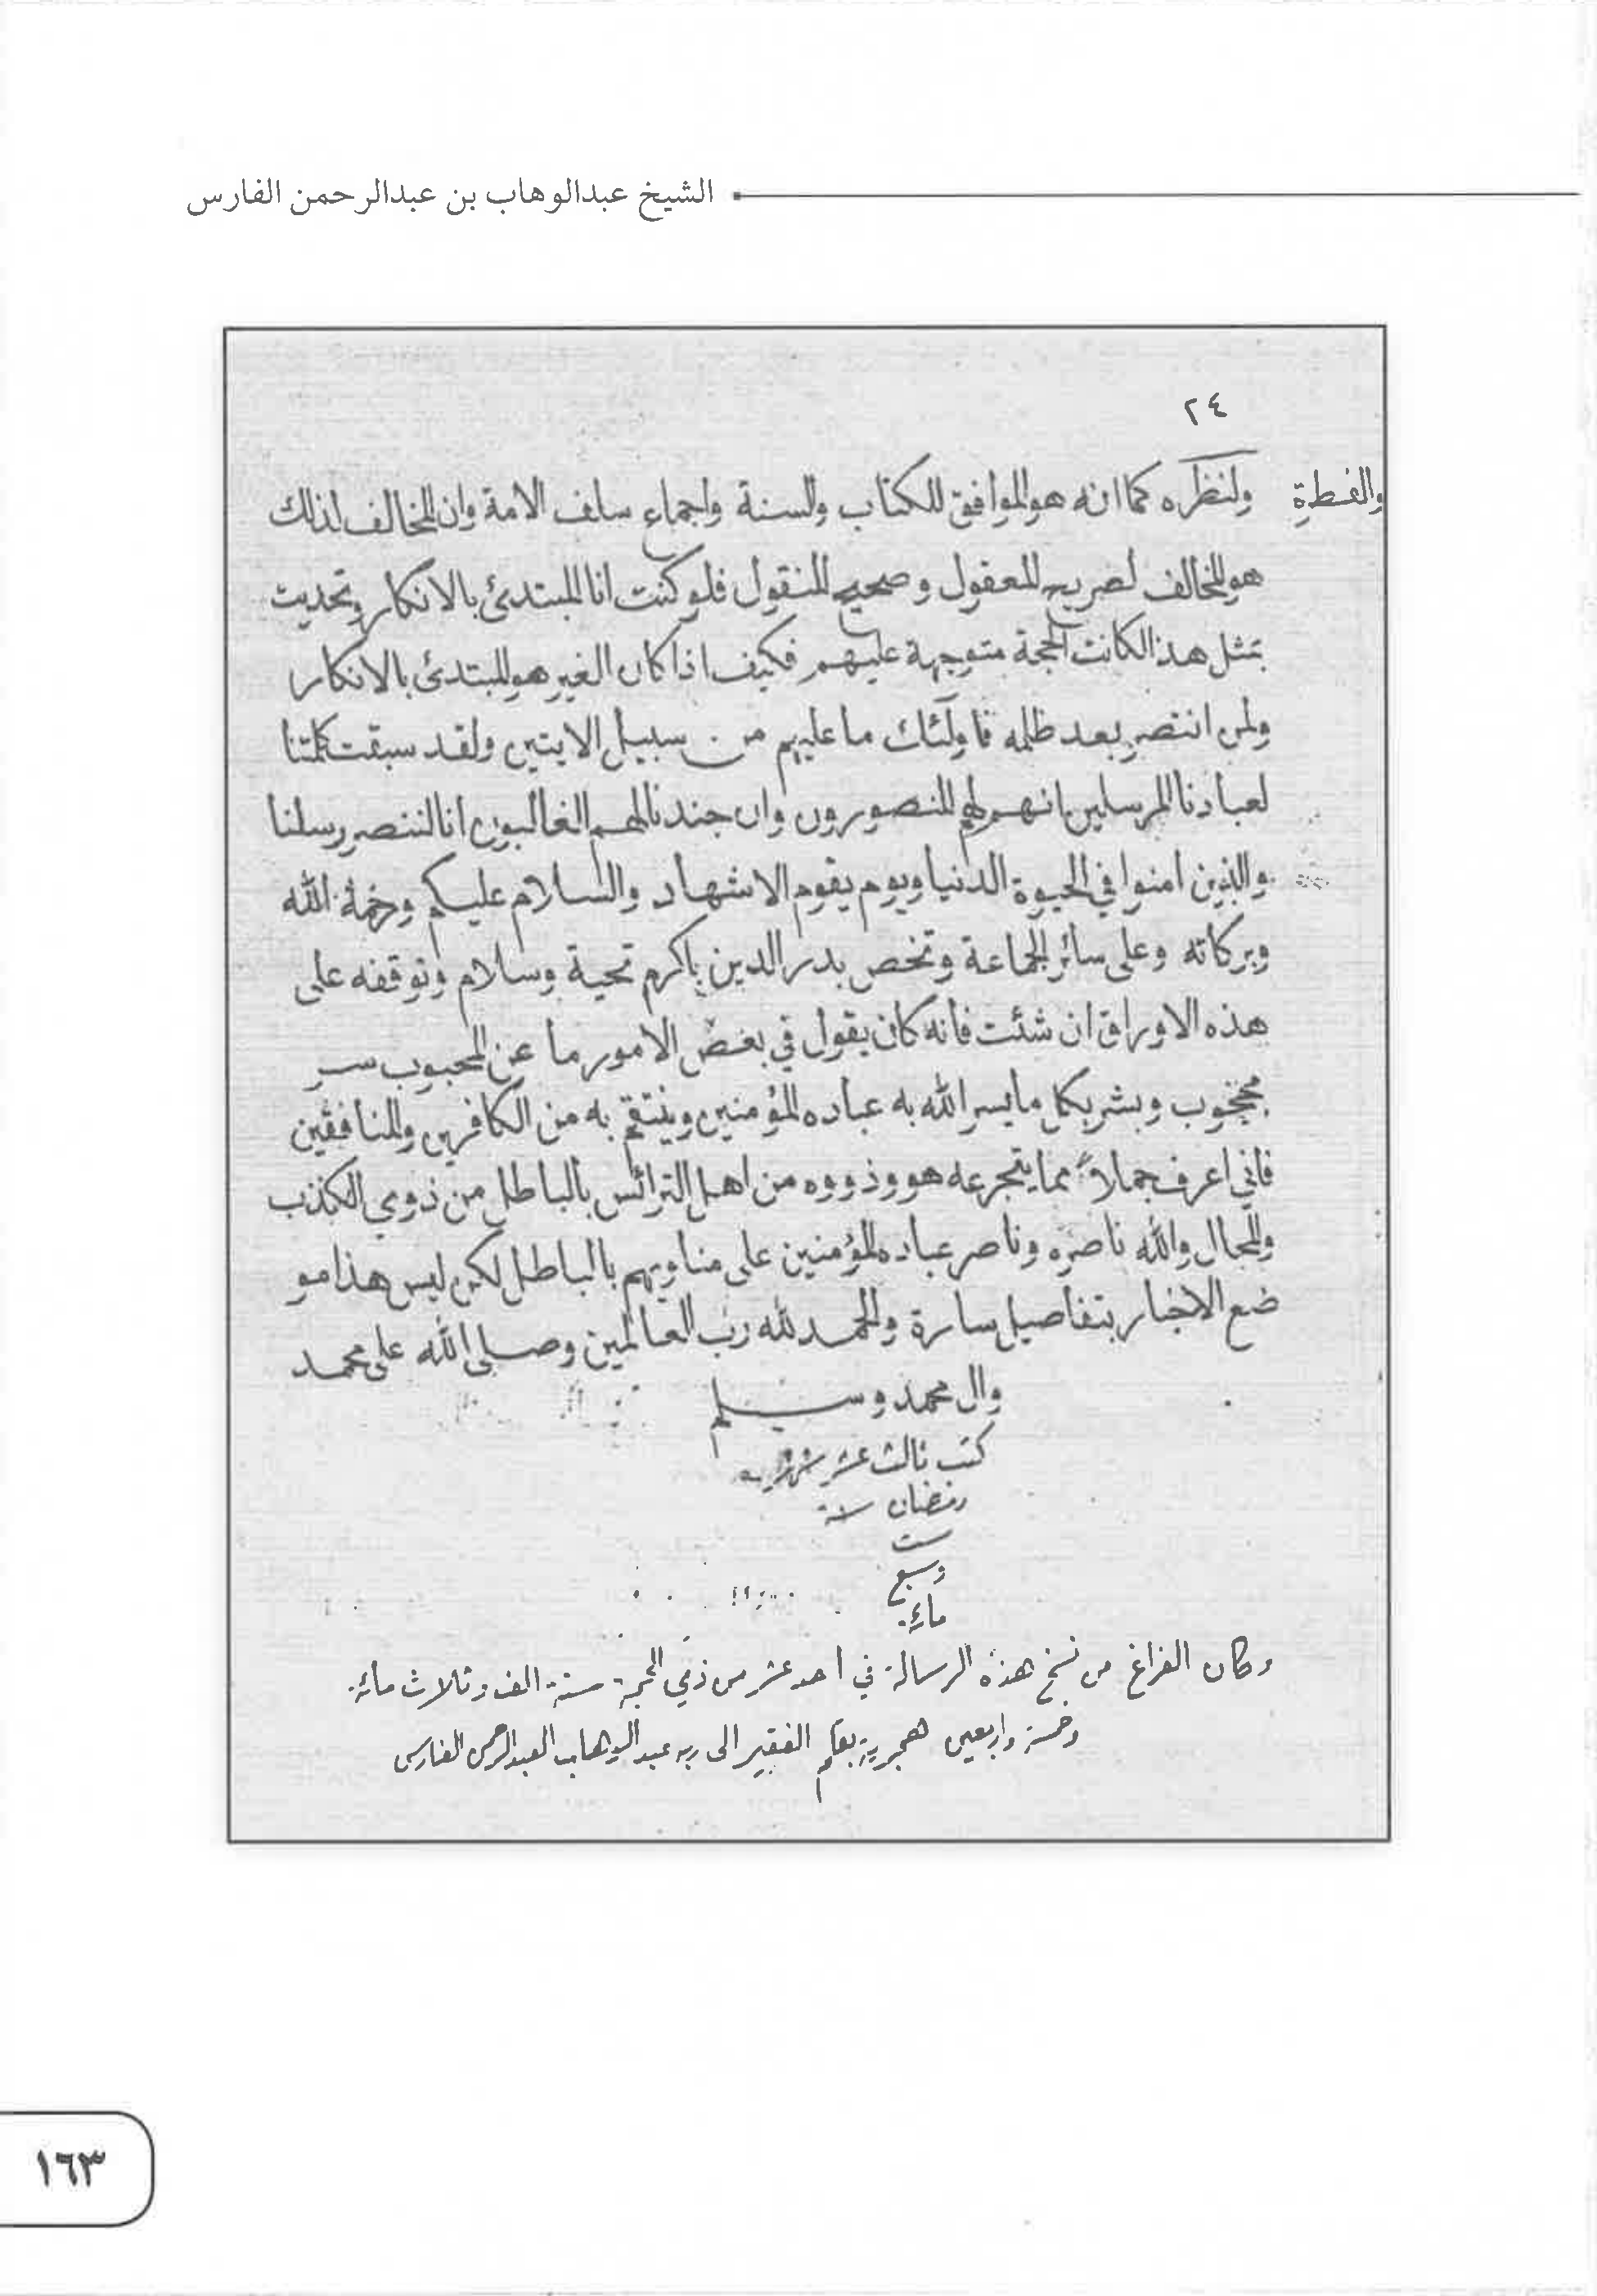 الشيخ عبدالوهاب بن عبدالرحمن الفارس
٢٤
والفطرة ولنظره كما انه هو الموافق للكتاب والسنة واجماع سلف الامة وان المخالف لذلك
هو المخالف لصريح المعقول وصحيح المنقول فلو كنت انا المبتدئ بالانكار وتحديث
بمثل هذا لكانت الحجة متوجهة عليهم فكيف اذا كان الغير هو المبتدئ بالانكار
ولمن انتصر بعد ظلمه فاولئك ما عليهم من سبيل الايتين ولقد سبقت كلمتنا
لعبادنا المرسلين انهم لهم المنصورون وان جندنا لهم الغالبون انا لننصر رسلنا
والذين امنوا في الحيوة الدنيا ويوم يقوم الاشهاد والسلام عليكم ورحمة الله
وبركاته وعلى سائر الجماعة وتخص بدر الدين باكرم تحية وسلام وتوقفه على
هذه الاوراق ان شئت فانه كان يقول في بعض الامور ما عن المحبوب سر
محجوب وبشر بكل ما يسر الله به عباده المؤمنين وينتقم به من الكافرين والمنافقين
فاني اعرف جملا مما يتجرعه هو وذووه من اهل الترائس بالباطل من ذوي الكذب
والمحال والله ناصره وناصر عباده المؤمنين على مناويهم بالباطل لكن ليس هذا مو
ضع الاخبار بتفاصيل سارة والحمد لله رب العالمين وصلى الله على محمد
وال محمد وسلم
كتب ثالث عشر شهر
رمضان سنة
ست
وسبع
مائة
وكان الفراغ من نسخ هذه الرسالة في احد عشر من ذي الحجة سنة الف وثلاث مائة
وخمسة واربعين هجرية بقلم الفقير الى ربه عبد الوهاب العبد الرحمن الفارس
١٦٣